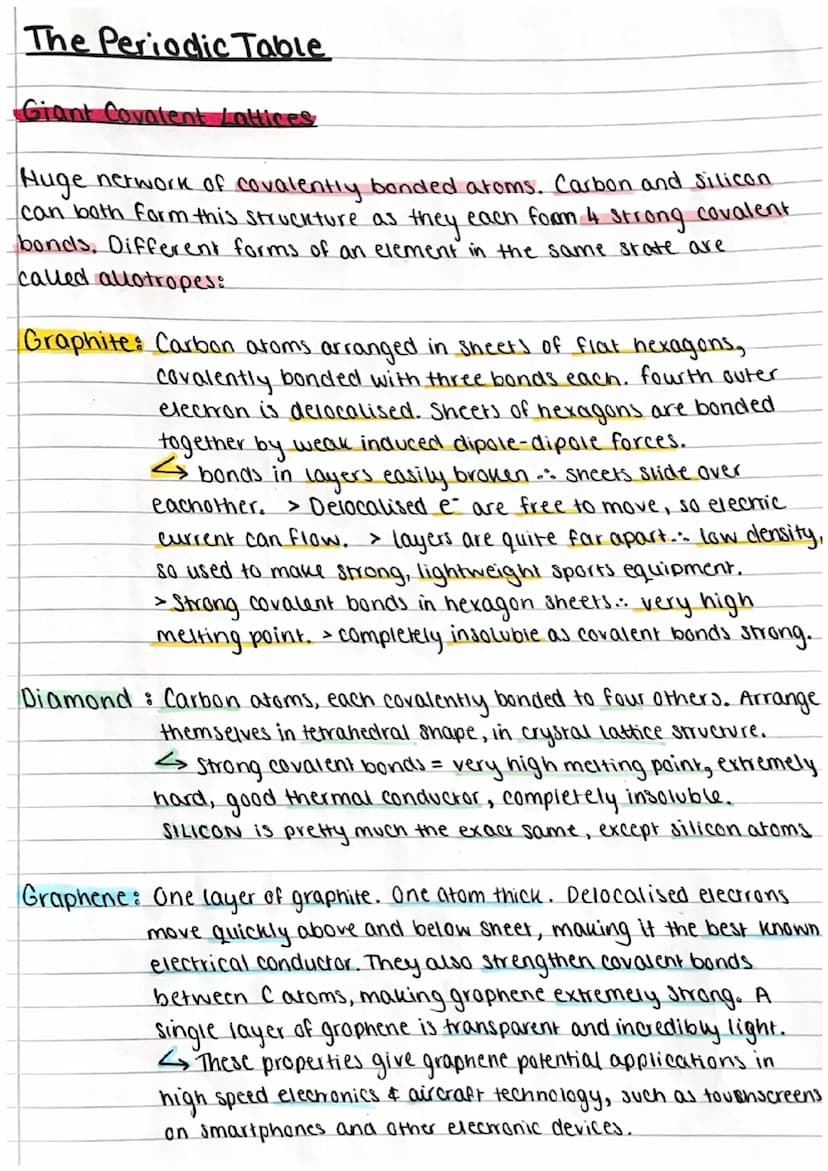 The Periodic Table
Giant Covalent Lattices
Huge network of covalently bonded atoms. Carbon and silicon
can both form this strucuture as they each form 4 strong covalent
bonds. Different forms of an element in the same state are
called allotropes:
Graphite: Carbon atoms arranged in sheets of flat hexagons,
covalently bonded with three bonds each. fourth outer
electron is delocalised. Sheets of hexagons are bonded
together by weak induced dipole-dipole forces.
↳ bonds in layers easily broken ∴ sheets slide over
eachother. > Delocalised e⁻ are free to move, so electric
current can flow. > layers are quite far apart ∴ low density,
so used to make strong, lightweight sports equipment.
> Strong covalent bonds in hexagon sheets ∴ very high
melting point. > completely insoluble as covalent bonds strong.
Diamond : Carbon atoms, each covalently bonded to four others. Arrange
themselves in tetrahedral shape, in crystal lattice structure.
↳ Strong covalent bonds = very high melting point, extremely
hard, good thermal conductor, completely insoluble.
SILICON is pretty much the exact same, except silicon atoms
Graphene: One layer of graphite. One atom thick. Delocalised electrons
move quickly above and below sheet, making it the best known
electrical conductor. They also strengthen covalent bonds
between C atoms, making graphene extremely strong. A
single layer of graphene is transparent and incredibly light.
↳ These properties give graphene potential applications in
high speed electronics & aircraft technology, such as touchscreens
on smartphones and other electronic devices.